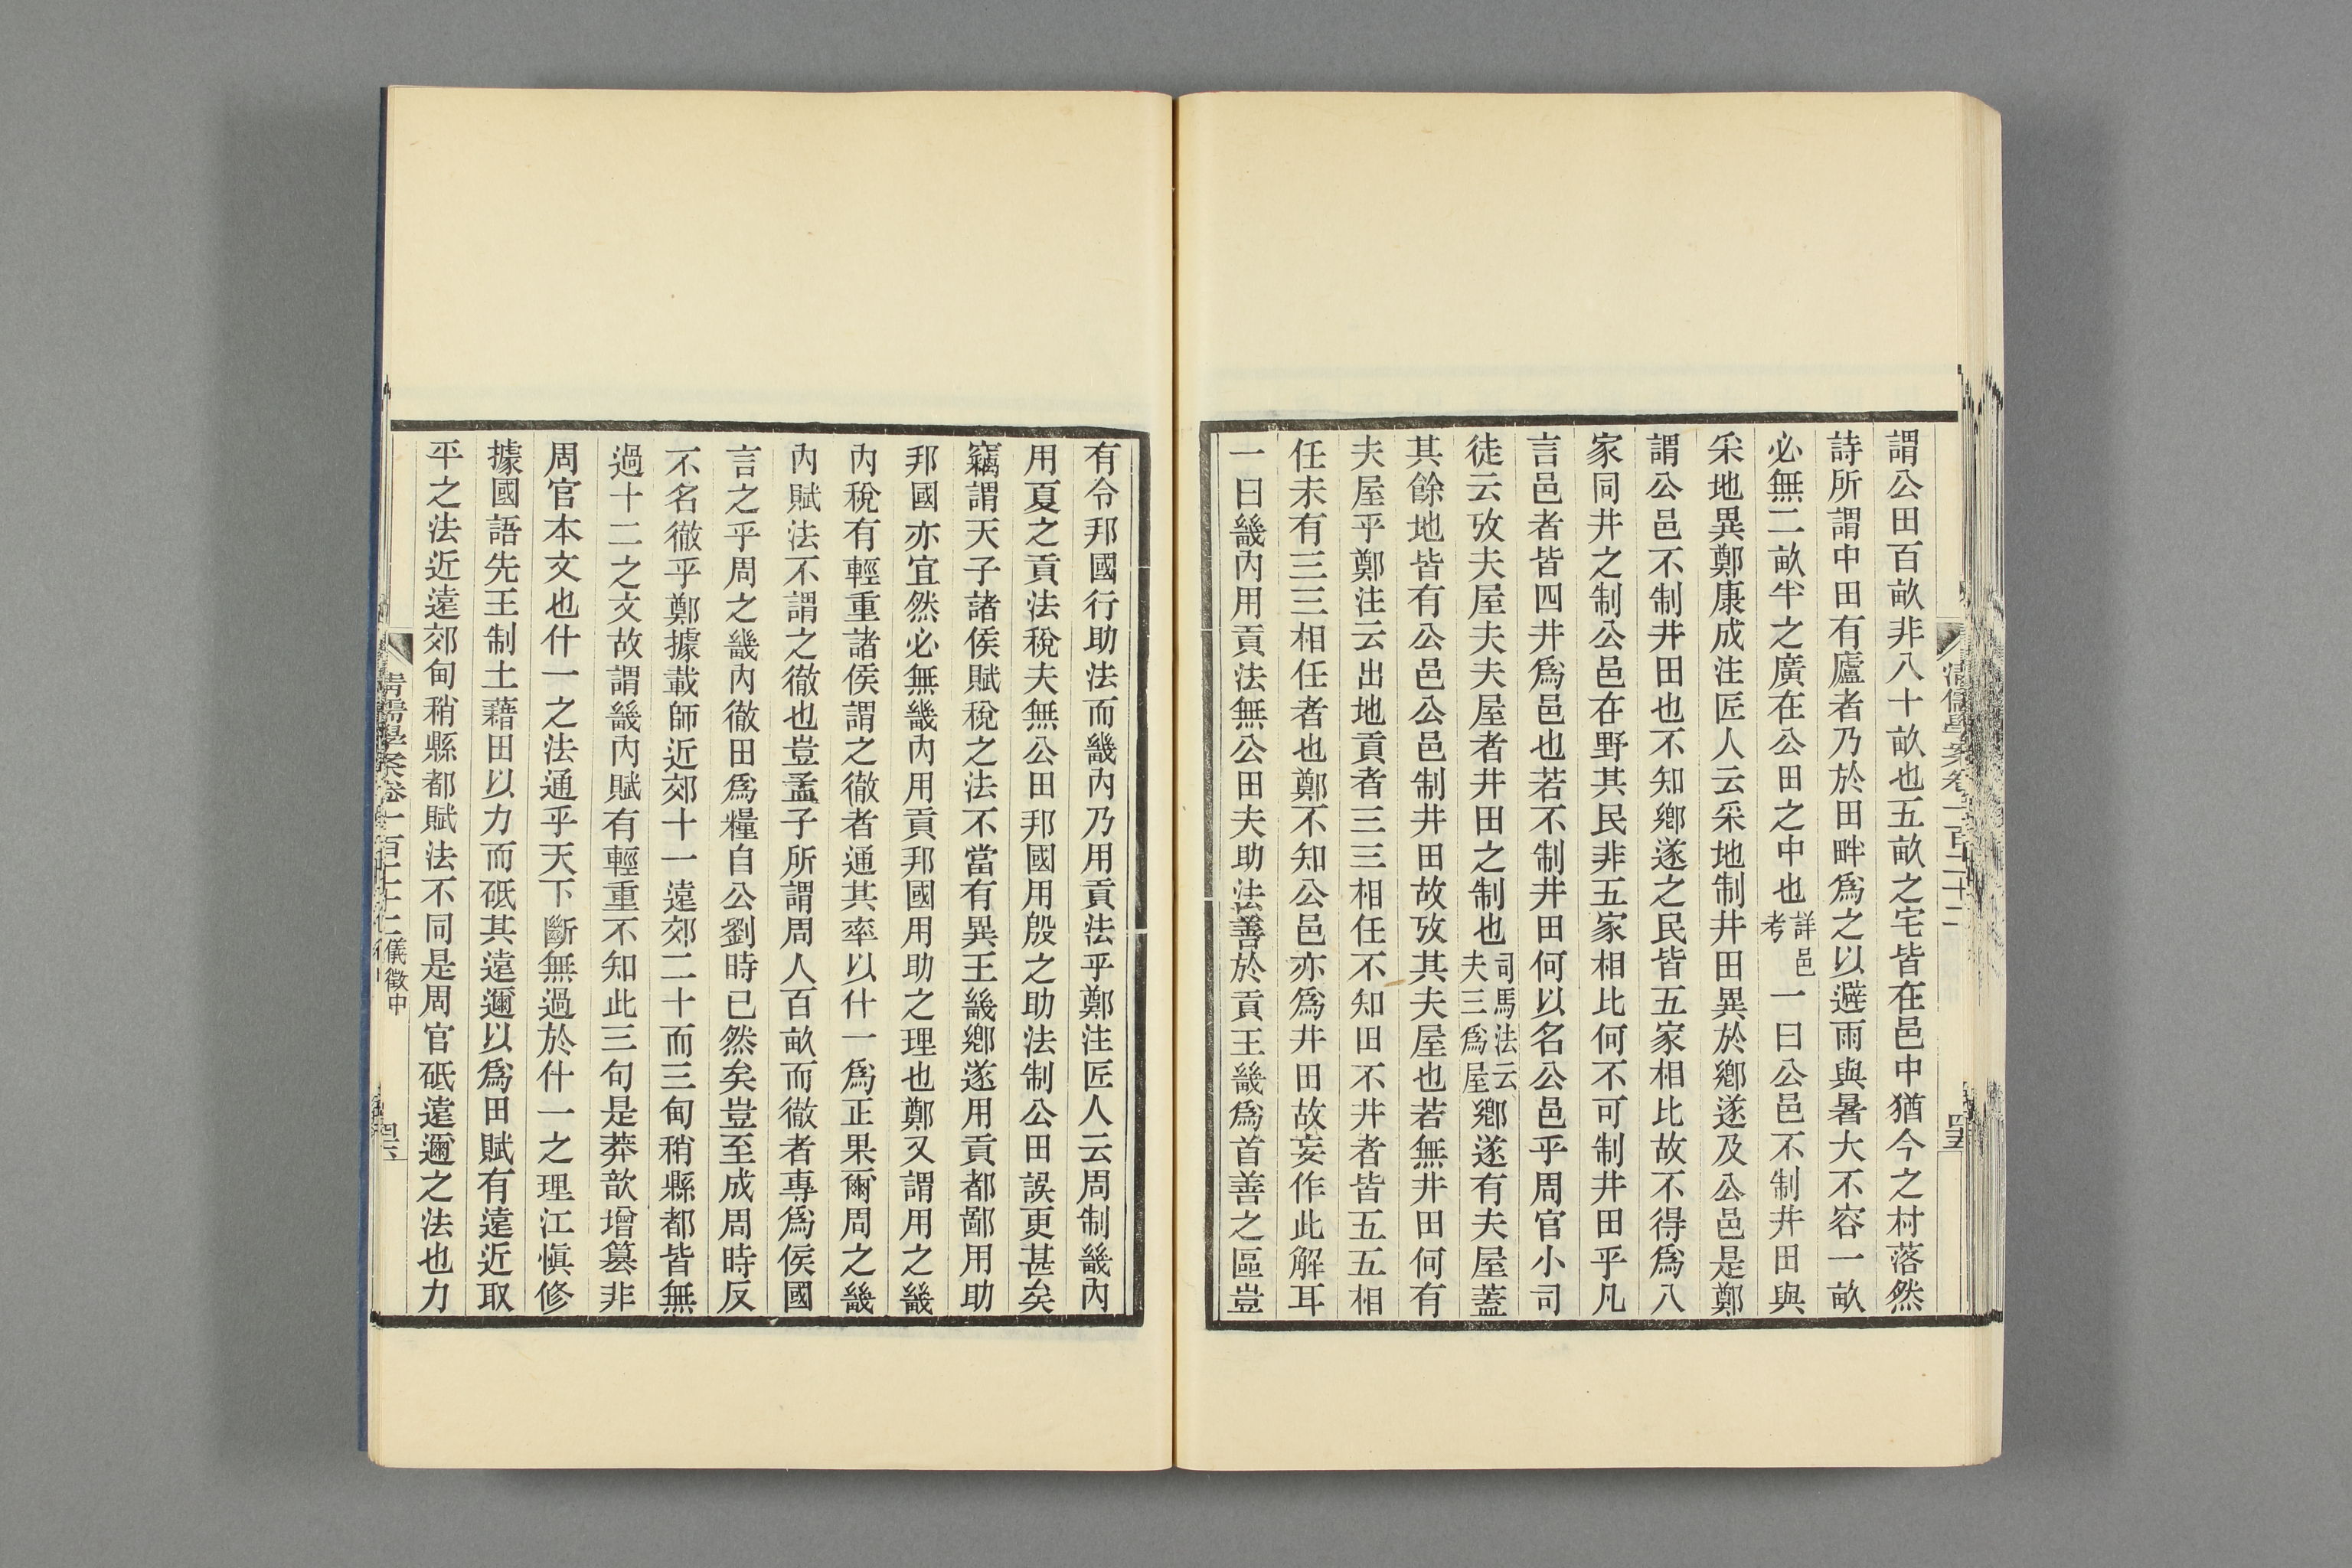 謂公田百畝非八十畝也五畝之宅皆在邑中猶今之村落然
詩所謂中田有廬者乃於田畔爲之以避雨與暑大不容一畝
必無二畝半之廣在公田之中也詳邑考一曰公邑不制井田與
采地異鄭康成注匠人云采地制井田異於鄉遂及公邑是鄭
謂公邑不制井田也不知鄉遂之民皆五家相比故不得爲八
家同井之制公邑在野其民非五家相比何不可制井田乎凡
言邑者皆四井爲邑也若不制井田何以名公邑乎周官小司
徒云攷夫屋夫夫屋者井田之制也司馬法云夫三爲屋鄉遂有夫屋蓋
其餘地皆有公邑公邑制井田故攷其夫屋也若無井田何有
夫屋乎鄭注云出地貢者三三相任不知田不井者皆五五相
任未有三三相任者也鄭不知公邑亦爲井田故妄作此解耳
一曰畿內用貢法無公田夫助法善於貢王畿爲首善之區豈
有令邦國行助法而畿內乃用貢法乎鄭注匠人云周制畿內
用夏之貢法稅夫無公田邦國用殷之助法制公田誤更甚矣
竊謂天子諸侯賦稅之法不當有異王畿鄉遂用貢都鄙用助
邦國亦宜然必無畿內用貢邦國用助之理也鄭又謂用之畿
內稅有輕重諸侯謂之徹者通其率以什一爲正果爾周之畿
內賦法不謂之徹也豈孟子所謂周人百畝而徹者專爲侯國
言之乎周之畿內徹田爲糧自公劉時已然矣豈至成周時反
不名徹乎鄭據載師近郊十一遠郊二十而三甸稍縣都皆無
過十二之文故謂畿內賦有輕重不知此三句是莽歆增篡非
周官本文也什一之法通乎天下斷無過於什一之理江愼修
據國語先王制土藉田以力而砥其遠邇以爲田賦有遠近取
平之法近遠郊甸稍縣都賦法不同是周官砥遠邇之法也力
清儒學案卷一百二十二
四五
清儒學案卷一百二十二儀徵中
四六